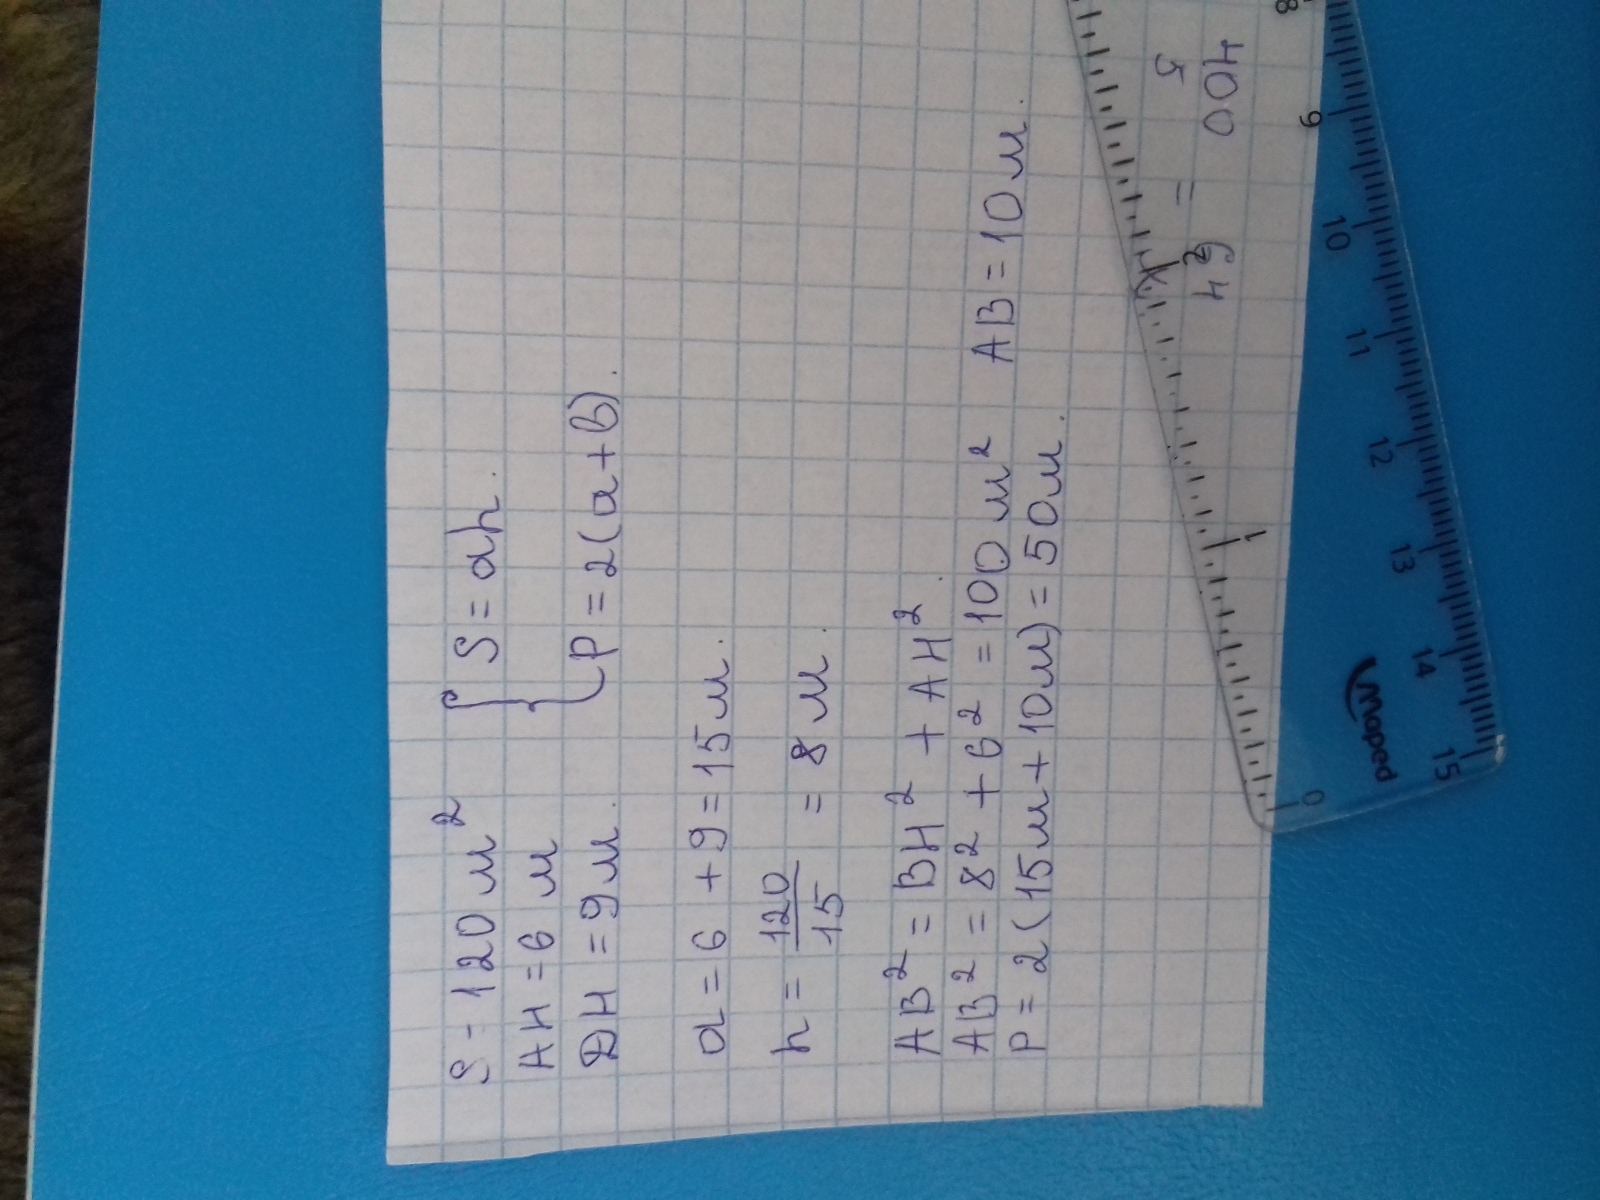 S - 120 м²
AH = 6 м
DH = 9 м.
{ S = ah.
P = 2(a+b).
a = 6 + 9 = 15 м.
h = 120/15 = 8 м.
AB² = BH² + AH².
AB² = 8² + 6² = 100 м² AB = 10 м.
P = 2(15м + 10м) = 50 м.
5 =
400
0
1
8
9
10
11
12
13
14
15
Maped